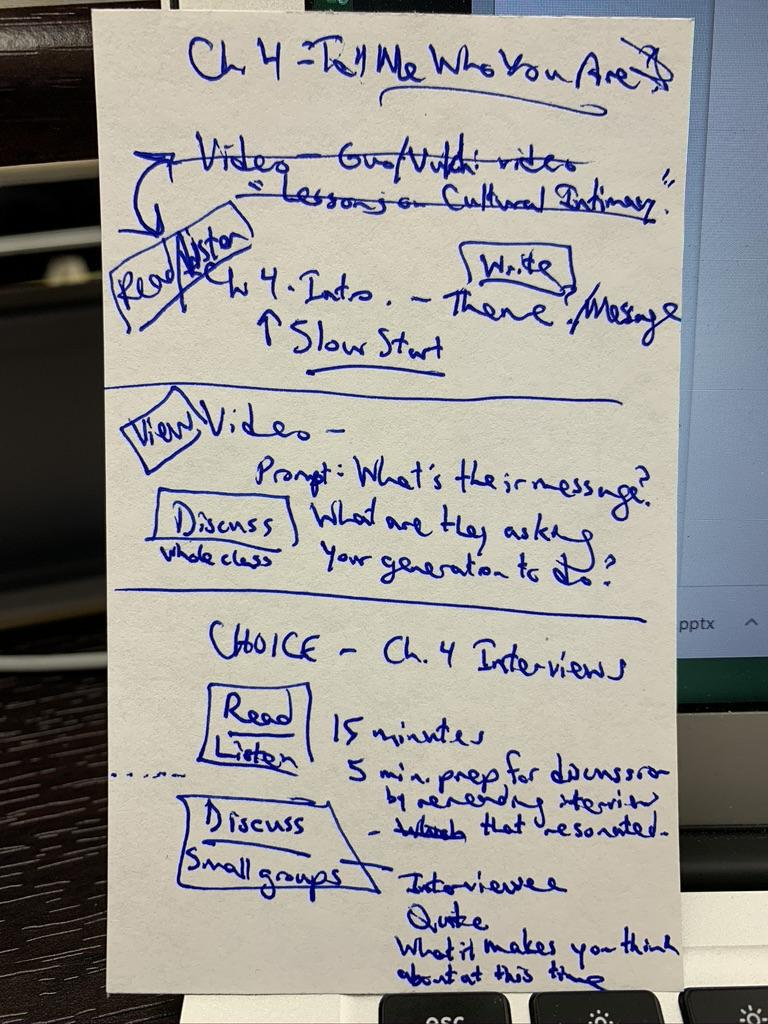 Ch. 4 - Tell Me Who You Are
Video - Guo/Vulchi video
"Lessons on Cultural Intimacy."
Read/Listen
Write
Ch 4. Intro. - Theme?/Message
↑ Slow Start
View Video -
Prompt: What's their message?
Discuss What are they asking
whole class your generation to do?
CHOICE - Ch. 4 Interviews
Read
Listen
15 minutes
5 min. prep for discussion
by rereading interview
- that resonated.
Discuss
Small groups
Interviewee
Quote
What it makes you think
about at this time
pptx
esc